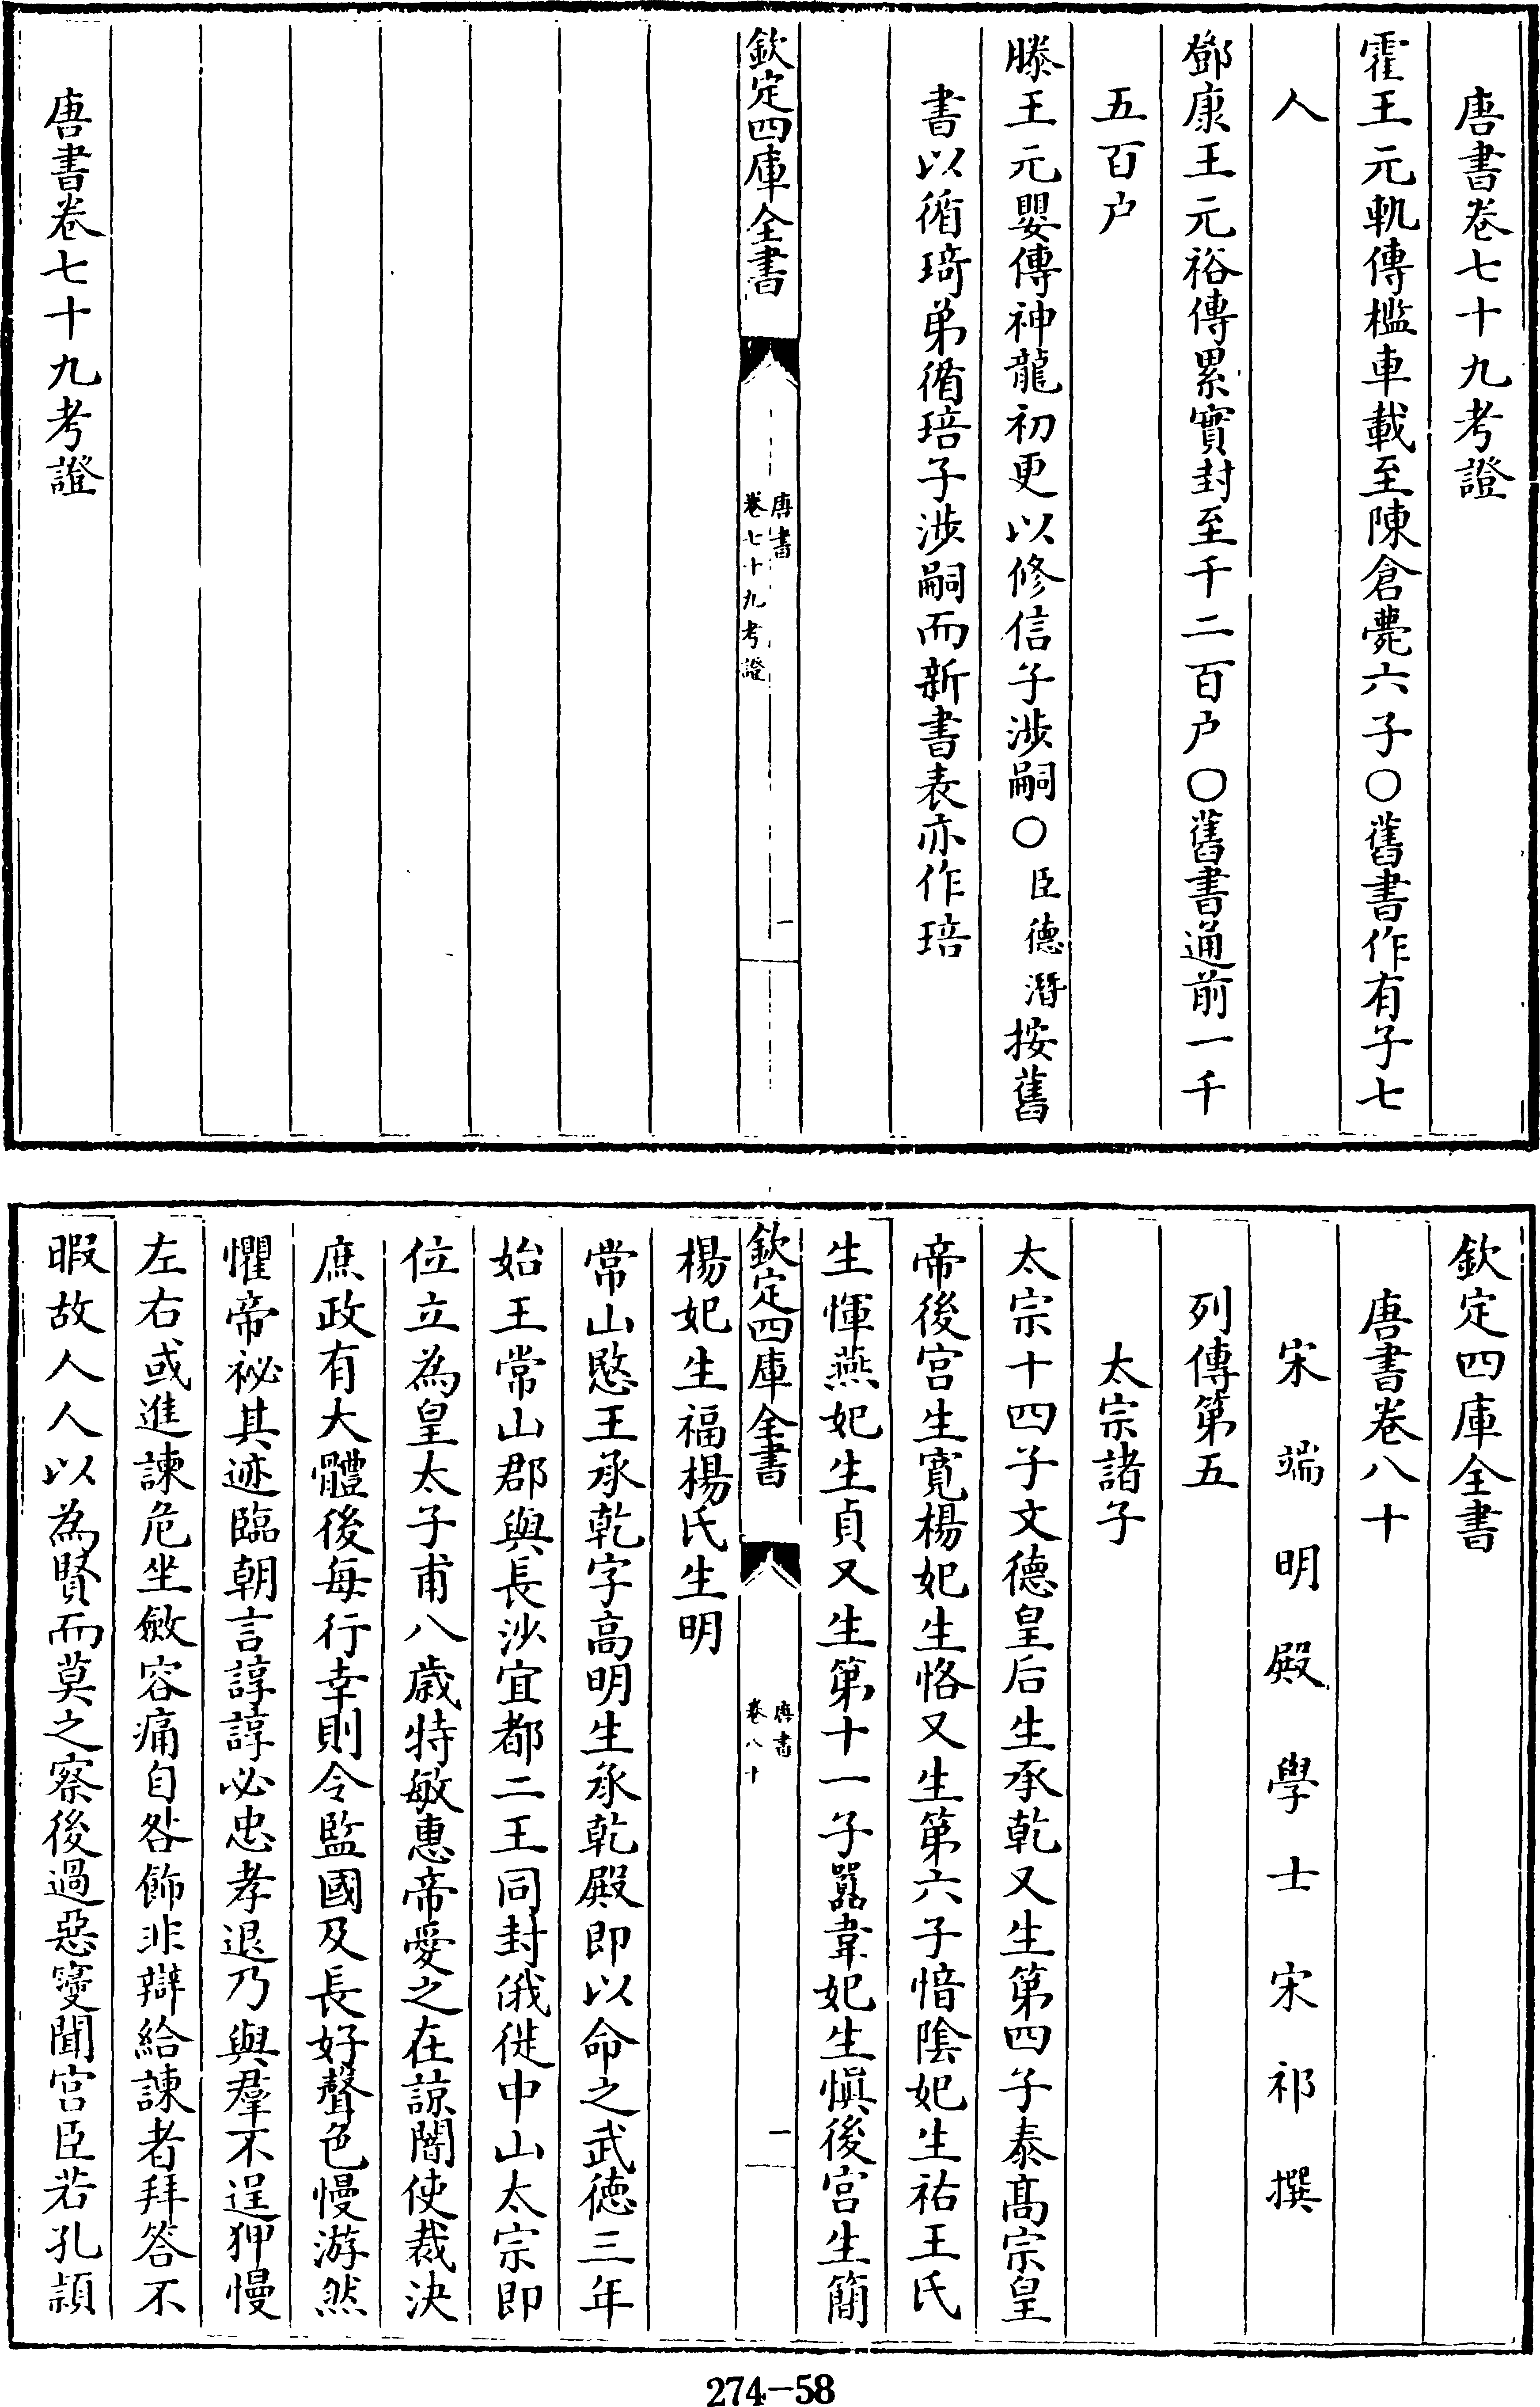 唐書卷七十九考證
霍王元軌傳檻車載至陳倉薨六子○舊書作有子七
人
鄧康王元裕傳累實封至千二百户○舊書通前一千
五百户
滕王元嬰傳神龍初更以修信子渉嗣○臣德潛按舊
書以循琦弟循琣子渉嗣而新書表亦作琣
欽定四庫全書
唐書
卷七十九考證
一
唐書卷七十九考證
欽定四庫全書
唐書卷八十
宋端明殿學士宋祁撰
列傳第五
太宗諸子
太宗十四子文德皇后生承乾又生第四子泰髙宗皇
帝後宫生寛楊妃生恪又生第六子愔陰妃生祐王氏
生惲燕妃生貞又生第十一子囂韋妃生慎後宫生簡
欽定四庫全書
唐書
卷八十
一
楊妃生福楊氏生明
常山愍王承乾字高明生承乾殿即以命之武德三年
始王常山郡與長沙宜都二王同封俄徙中山太宗即
位立為皇太子甫八歲特敏惠帝愛之在諒闇使裁決
庶政有大體後每行幸則令監國及長好聲色慢游然
懼帝祕其迹臨朝言諄諄必忠孝退乃與羣不逞狎慢
左右或進諫危坐斂容痛自咎飾非辯給諫者拜答不
暇故人人以為賢而莫之察後過惡寖聞宫臣若孔頴
274-58